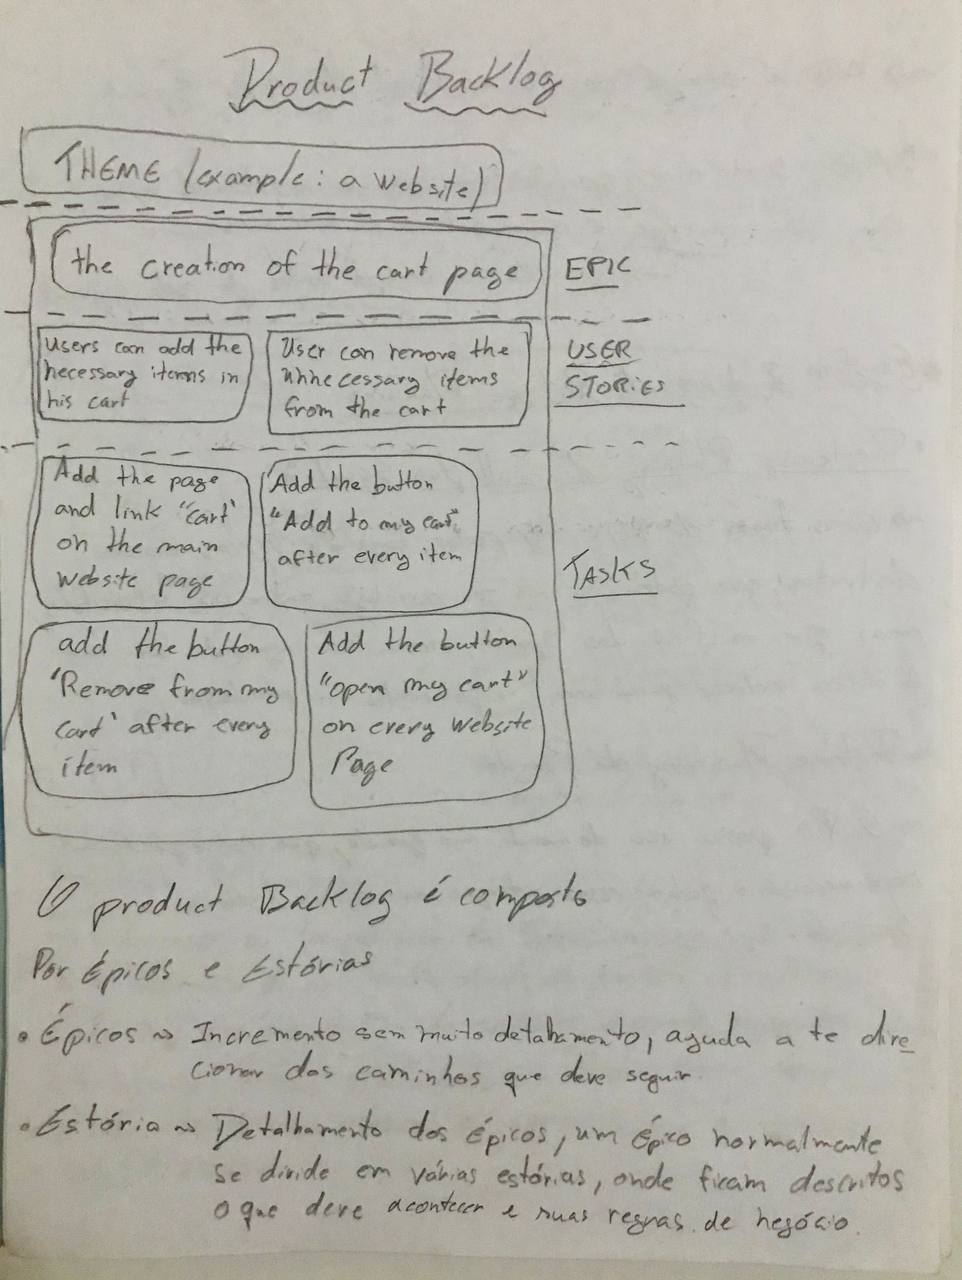 Product Backlog
THEME (example: a website)
the creation of the cart page
EPIC
Users can add the
necessary items in
his cart
User can remove the
unnecessary items
from the cart
USER
STORIES
Add the page
and link "cart'
on the main
website page
Add the button
"Add to my cart"
after every item
TASKS
add the button
'Remove from my
cart' after every
item
Add the button
"open my cart"
on every website
Page
O product Backlog é composto
Por Épicos e Estórias
• Épicos → Incremento sem muito detalhamento, ajuda a te dire
cionar dos caminhos que deve seguir.
• Estória → Detalhamento dos épicos, um épico normalmente
se divide em várias estórias, onde ficam descritos
o que deve acontecer e suas regras de negócio.